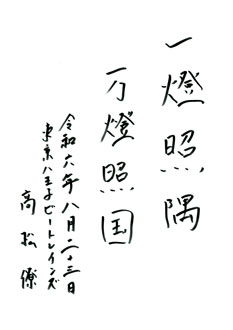 一燈照隅
万燈照国
令和六年八月二十三日
東京八王子ビートレインズ
髙松僚